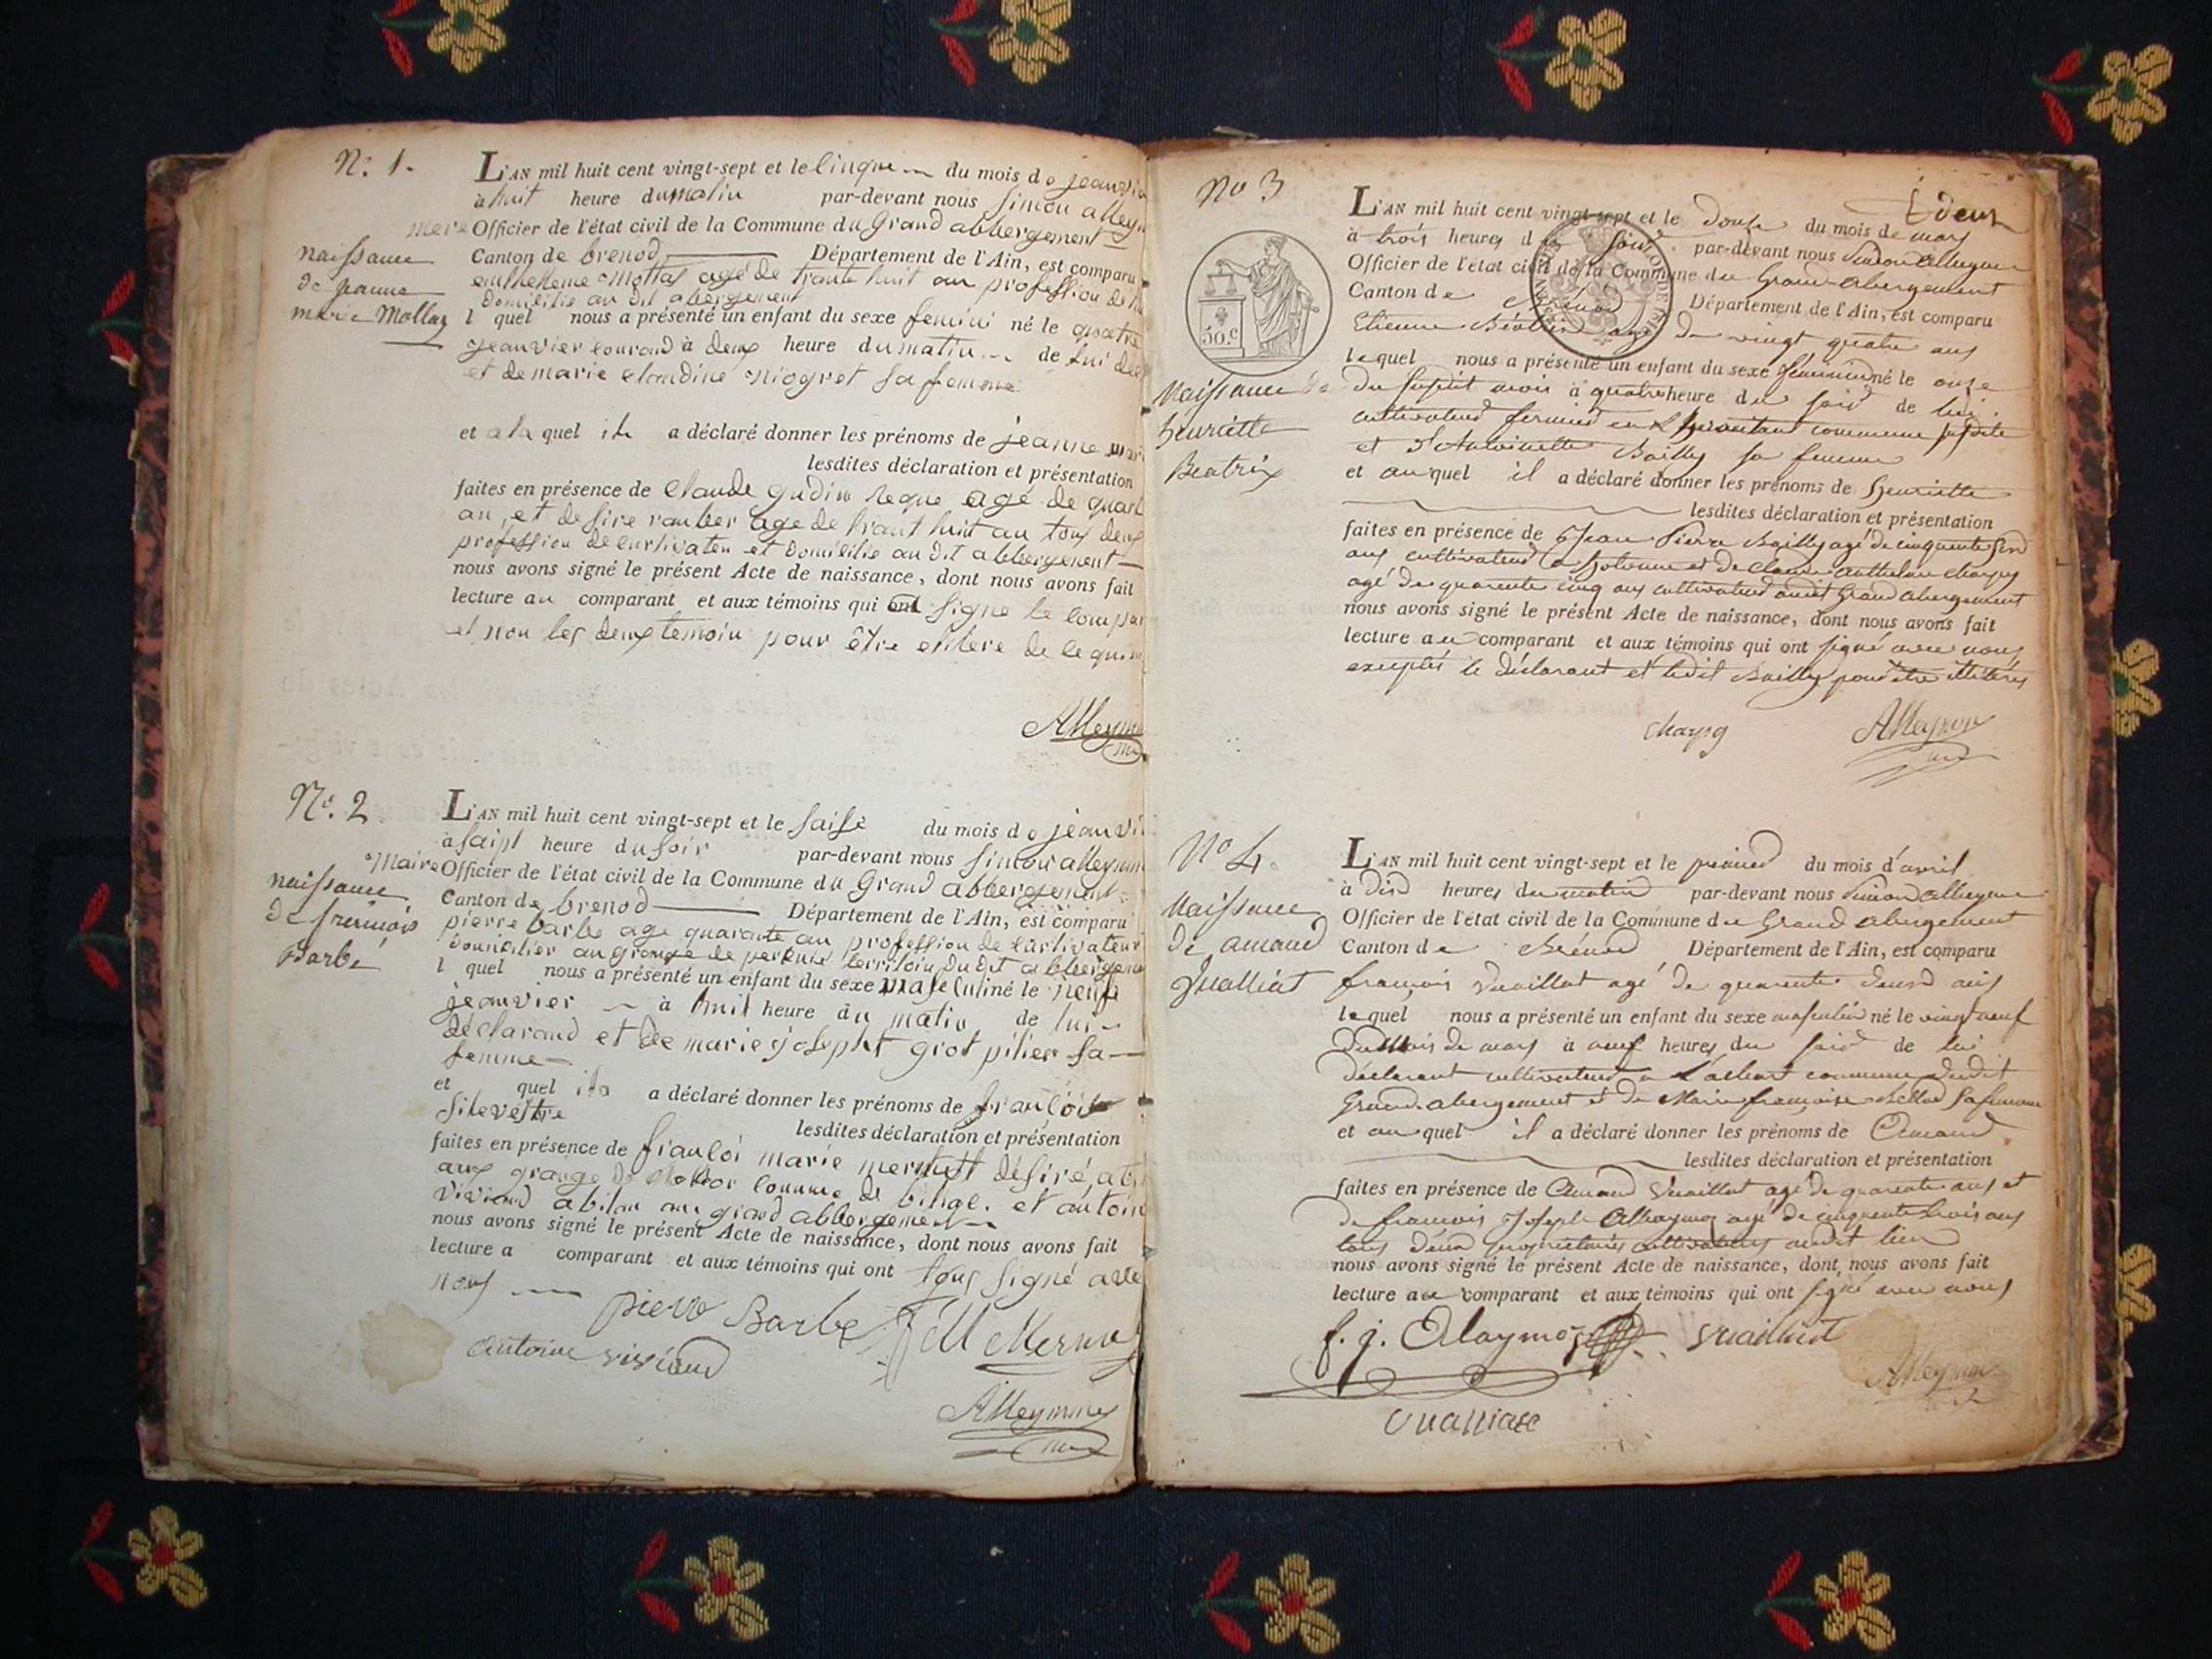 N.º 1.
L'AN mil huit cent vingt-sept et le cinque du mois de jeanvi
à huit heure du matin par-devant nous Simon alleyn
mere Officier de l'état civil de la Commune du Grand abbergement
naissance
de jeanne
marie Mollaz
Canton de brenod Département de l'Ain, est comparu
enthelleme Mollas agé de trante huit an profession de
domicilie au dit abergement
l quel nous a présenté un enfant du sexe feminin né le quatre
jeanvier courand à deux heure du matin de lui dec
et de marie claudine niogret sa femme
et a la quel il a déclaré donner les prénoms de jeanne mari
lesdites déclaration et présentation
faites en présence de Claude gudin agé de quar
an, et desire agé de trant huit an tous deux
profession de curtivateu et domicilie au dit abbergement
nous avons signé le présent Acte de naissance, dont nous avons fait
lecture au comparant et aux témoins qui ont signe le compar
et non les deux temoin pour être elitere de ce
Alleymo
N.º 2
L'AN mil huit cent vingt-sept et le saise du mois de jeanvi
à saipt heure du soir par-devant nous Simon alleymo
Maire Officier de l'état civil de la Commune du Grand abbergement
naissance
de francois
Barbé
Canton de brenod Département de l'Ain, est comparu
pierre barbe age quarante an profession de curtivateur
domicilier au grange de territoir du dit abberge
l quel nous a présenté un enfant du sexe masculin né le neuf
jeanvier à huit heure du matin de lui
déclarand et de marie josepht grot pilier sa
femme
et quel il a déclaré donner les prénoms de françois
silevestre
lesdites déclaration et présentation
faites en présence de françoi marie mermet désiré, abi
aux grange de commune de et antoin
viviand abitan au grand abbergement
nous avons signé le présent Acte de naissance, dont nous avons fait
lecture a comparant et aux témoins qui ont tous signé avec
nous
pierre Barbe
antoine viviand
Alleymo
N.º 3
deux
50.c
Naissance de
henriette
Beatrix
L'AN mil huit cent vingt-sept et le douze du mois de mars
à trois heures du soir par-devant nous Simon alleymo
Officier de l'état civil de la Commune du Grand-abergement
Canton de Brenod Département de l'Ain, est comparu
Etienne Béatrix agé de vingt quatre ans
lequel nous a présenté un enfant du sexe féminin né le onze
du susdit mois à quatre heure du soir de lui
cultivateur fermier en commune susdite
et d'Antoinette Bailly sa femme
et auquel il a déclaré donner les prénoms de henriette
lesdites déclaration et présentation
faites en présence de Jean Pierre Bailly agé de cinquante
ans cultivateur a et de Claude anthelme charpy
agé de quarente cinq ans cultivateur audit Grand abergement
nous avons signé le présent Acte de naissance, dont nous avons fait
lecture au comparant et aux témoins qui ont signé avec nous
exceptés le déclarant et ledit Bailly pour être illitérés
charpy Alleymo
N.º 4.
Naissance
de amand
Vualliat
L'AN mil huit cent vingt-sept et le premier du mois d'avril
à dix heures du matin par-devant nous Simon alleymo
Officier de l'état civil de la Commune du Grand abergement
Canton de Brenod Département de l'Ain, est comparu
françois Vuaillat agé de quarente deux ans
lequel nous a présenté un enfant du sexe masculin né le vingt neuf
du mois de mars à neuf heures du soir de lui
déclarant cultivateur a commune dudit
Grand-abergement et de Marie françoise sa femme
et auquel il a déclaré donner les prénoms de Amand
lesdites déclaration et présentation
faites en présence de Amand Vuaillat agé de quarente ans et
de françois Joseph Allaymoz agé de cinquante trois ans
tous deux propriétaires cultivateurs audit lieu
nous avons signé le présent Acte de naissance, dont nous avons fait
lecture au comparant et aux témoins qui ont signé avec nous
f. j. Alaymoz Vuailliat
Alleymo
Vualliat